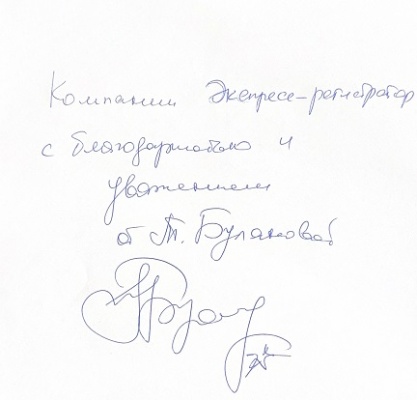 Компании Экспресс-регистратор
с благодарностью и
уважением
от Т. Булановой